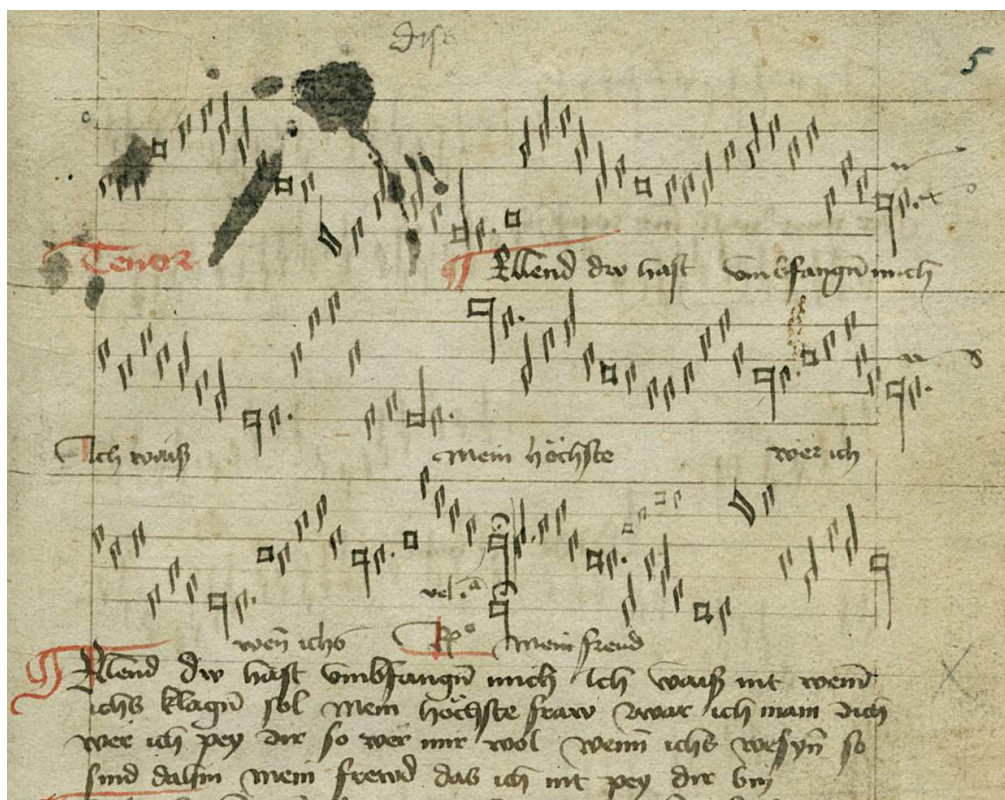 5
Tenor
Ellend dw hast vmbfangn̄ mich
Ich waiß mein höchste wer ich
vel
wen̄ ichs Rͦ mein freud
Ellend dw hast vmbfangn̄ mich Ich waiß nit wem̄
ichs klagn̄ sol Mein höchste fraw zwar ich main dich
wer ich pey dir so wer mir wol wenn ichs so
sind dahin mein frewd das ich nit pey dir bin